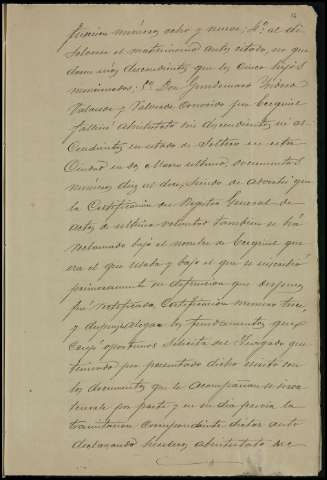 número ocho y nueve; 4º. al di-
solverse el matrimonio antes citado, no que-
daron más descendientes que los cinco hijos
mencionados; 5º. Don Gundemaro Ysidoro
Valcarce y Valcarce conocido por Ezequiel
falleció abintestato sin descendientes ni as-
cendientes en estado de soltero en esta
Ciudad en dos Marzo último, documentos
números diez al doce, siendo de advertir que
la Certificación del Registro General de
actos de última voluntad tambien se ha
reclamado bajo el nombre de Ezequiel que
era el que usaba y bajo el que se inscribió
primeramente su defunción que despues
fué rectificada, Certificación número trece
y despues alegar los fundamentos que
creyó oportunos Solicita del Juzgado que
teniendo por presentado dicho escrito con
los documentos que le acompañan se tenga
por parte y en su dia previa la
tramitación correspondiente dictar auto
declarando herederos abintestato de